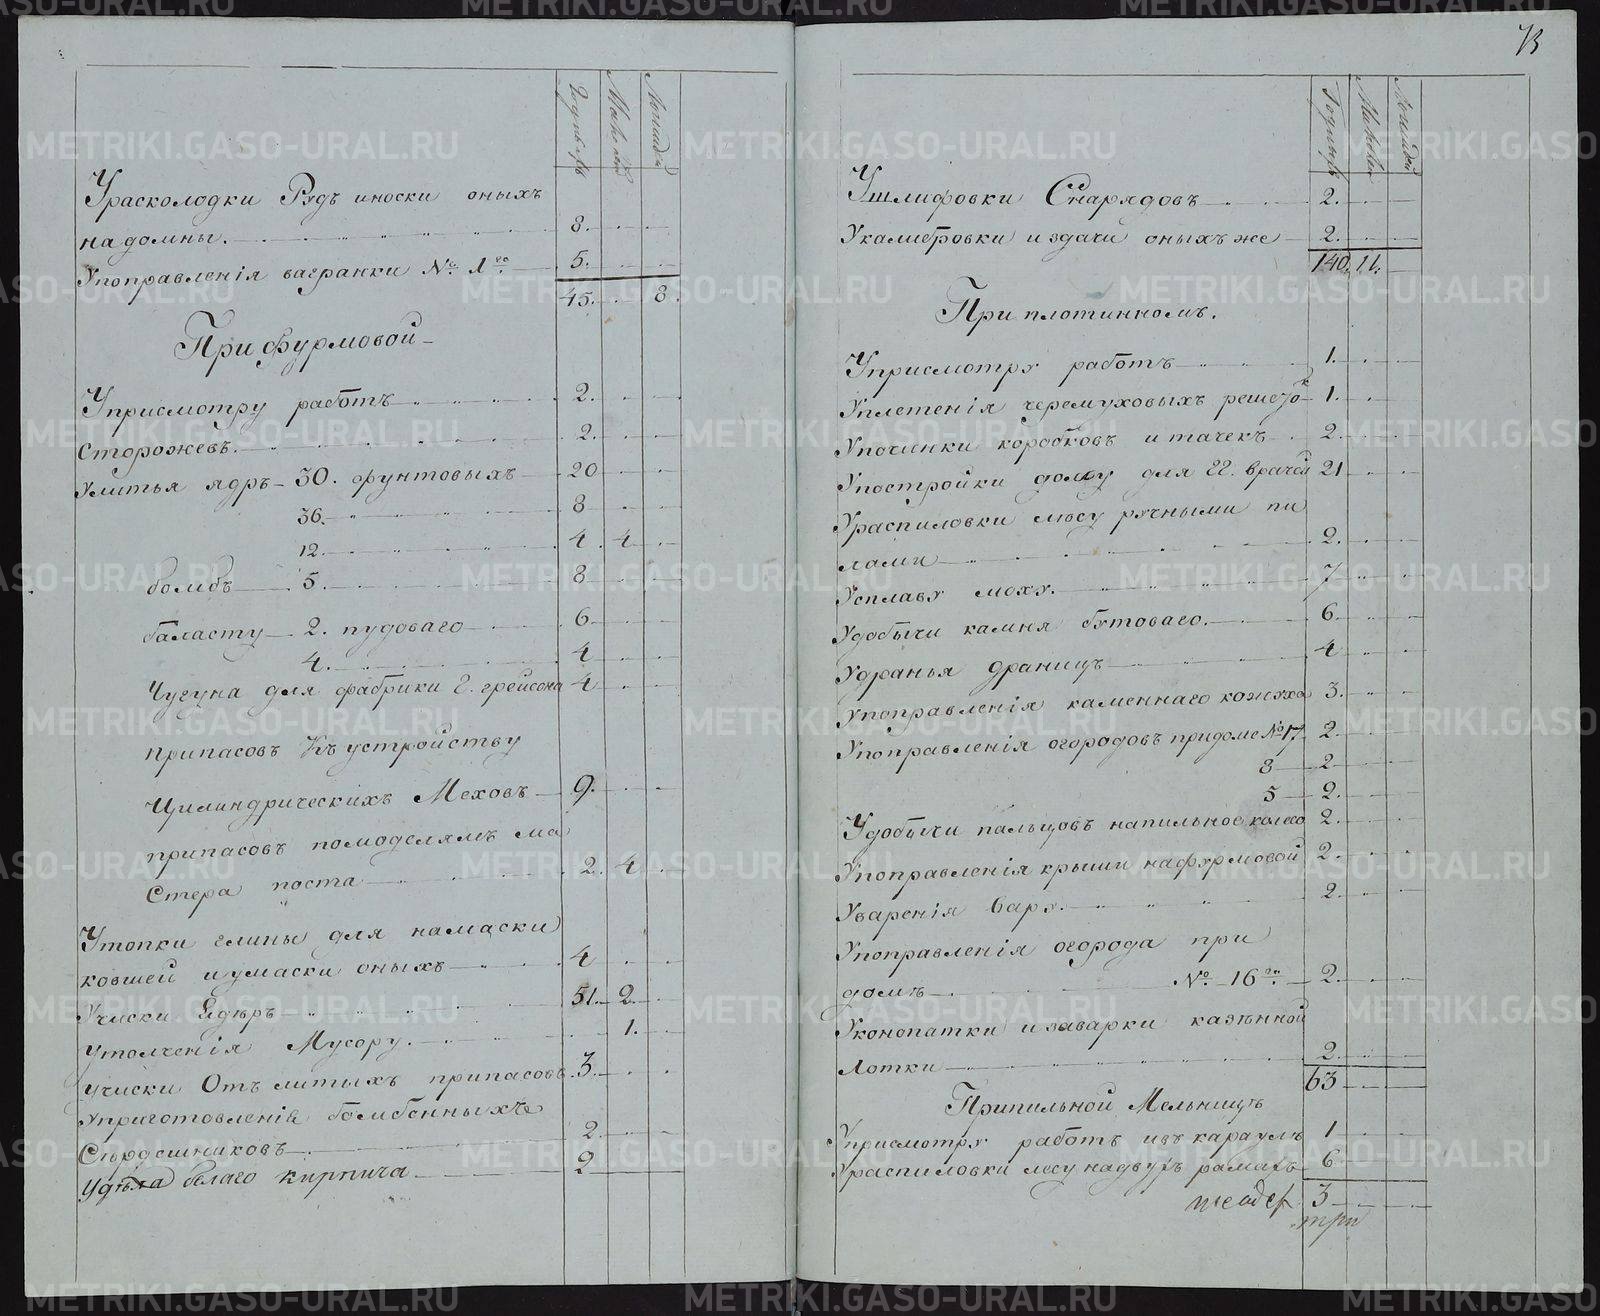 У расколодки Рудъ и носки оныхъ
на домны. 8.
У поправленія вагранки № 1го 5.
45. 8.
При фурмовой
У присмотру работъ 2.
Сторожевъ. 2.
У литья ядръ 30. фунтовыхъ 20
36. 8
12. 4. 4
бомбъ 5. 8
баласту 2. пудоваго 6.
4. 4
Чугуна для фабрики Г. грейсона 4
припасовъ къ устройству
Цилиндрическихъ Меховъ 9.
припасовъ по моделямъ ма
стера поста 2. 4.
У топки глины для намаски
ковшей и умаски оныхъ 4
У чиски Ядеръ 51. 2.
У толченія Мусору. 1.
У чиски Отъ литыхъ припасовъ 3.
У приготовленія бомбенныхъ
Сердешниковъ 2.
У дѣла белаго кирпича 2
73
У шлифовки Снарядовъ 2.
У калибровки и здачи оныхъ же 2.
140. 11.
При плотинномъ.
У присмотру работъ 1.
У плетенія черемуховыхъ решетокъ 1.
У починки коробковъ и тачекъ 2.
У постройки дому для ГГ. врачей 21
У распиловки лѣсу ручными пи
лами 2.
У сплаву моху. 7
У добычи камня бутоваго. 6.
У дранья драницъ 4
У поправленія каменнаго кожуха 3.
У поправленія огородовъ при доме № 17 2.
8 2
5 2.
У добычи пальцовъ на пильное колесо 2.
У поправленія крыши на фурмовой 2.
У варенія вару. 2.
У поправленія огорода при
домѣ № 16ти 2.
У конопатки и заварки казенной
Лотки 2.
63
При пильной Мельницѣ
У присмотру работъ и въ караулѣ 1
У распиловки лесу на двухъ рамахъ 6.
3
три
METRIKI.GASO-URAL.RU